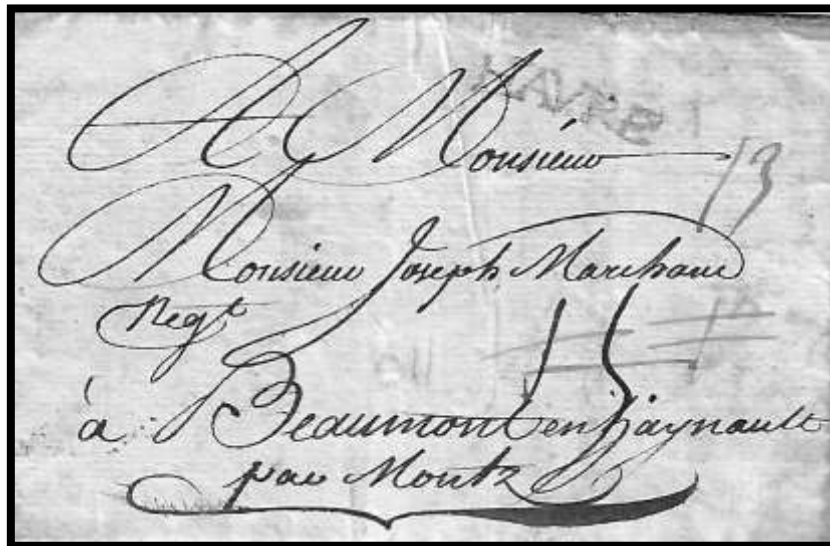 A Monsieur
13
Monsieur Joseph Marchand
Negt
à Beaumont en haynault
par Monts